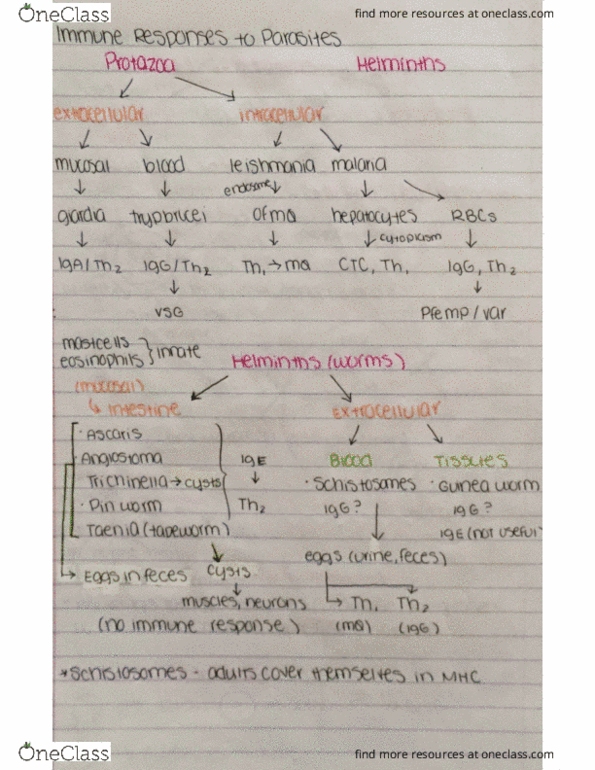 OneClass find more resources at oneclass.com
Immune Responses to Parasites
Protazoa Helminths
extracellular intracellular
mucosal blood leishmania malaria
endosome
giardia tryp brucei of mφ hepatocytes RBCs
cytoplasm
IgA/Th2 IgG/Th2 Th1→mφ CTC, Th1 IgG, Th2
VSG Pfemp/var
mastcells
eosinophils } innate Helminths (worms)
(mucosal)
↳ intestine extracellular
· Ascaris
· Angiostoma IgE Blood Tissues
Trichinella → cysts · Schistosomes · Guinea worm
· Pin worm Th2 IgG? IgG?
Taenia (tapeworm) IgE (not useful)
eggs (urine, feces)
→ Eggs in feces cysts
muscles, neurons → Th1 Th2
(no immune response) (mφ) (IgG)
*Schistosomes - adults cover themselves in MHC
OneClass find more resources at oneclass.com